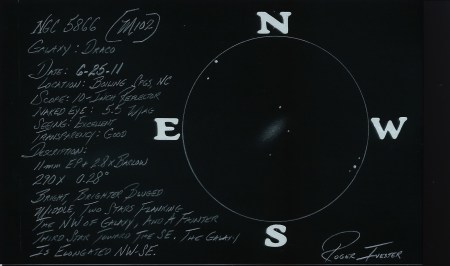 NGC 5866 (M102)
Galaxy: Draco
Date: 6-25-11
Location: Boiling Spgs, NC
Scope: 10-Inch Reflector
Naked Eye: 5.5 Mag
Seeing: Excellent
Transparency: Good
Description:
11mm EP + 2.8x Barlow
290x 0.28°
Bright, Brighter Bulged
Middle, Two Stars Flanking
The NW of Galaxy, And A Fainter
Third Star Toward The SE. The Galaxy
Is Elongated NW-SE.
N
E
W
S
Roger Ivester